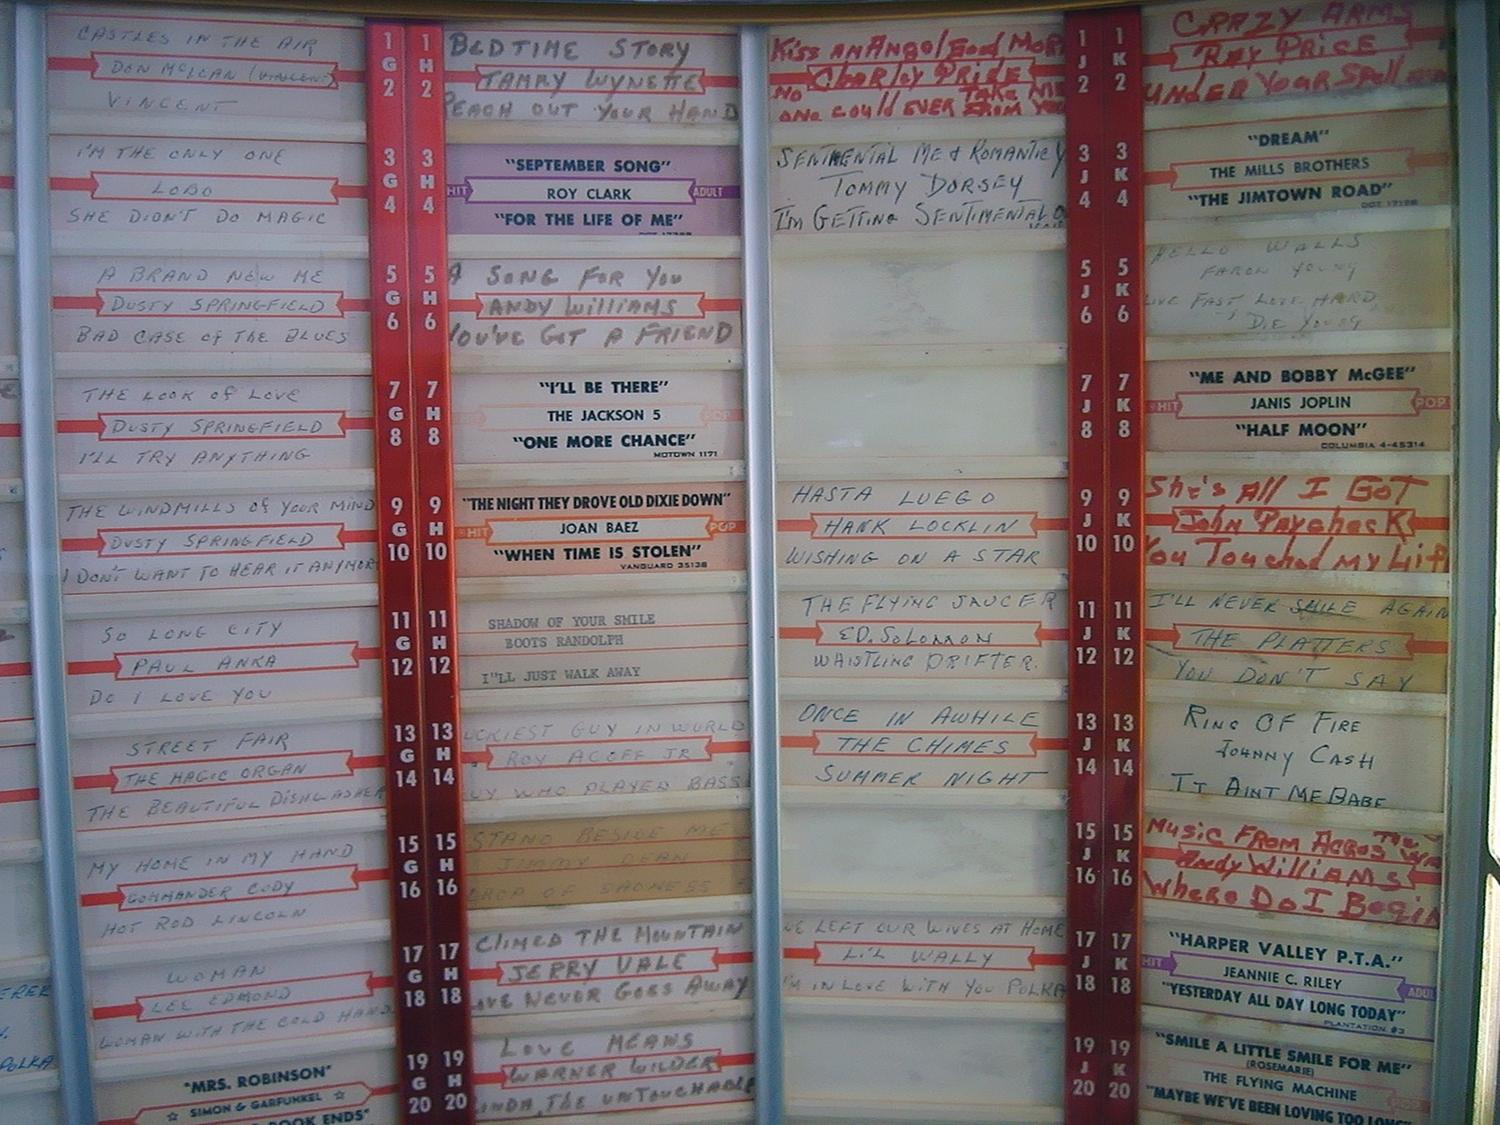 CASTLES IN THE AIR
DON McLEAN (VINCENT)
VINCENT
I'M THE ONLY ONE
LOBO
SHE DIDN'T DO MAGIC
A BRAND NEW ME
DUSTY SPRINGFIELD
BAD CASE OF THE BLUES
THE LOOK OF LOVE
DUSTY SPRINGFIELD
I'LL TRY ANYTHING
THE WINDMILLS OF YOUR MIND
DUSTY SPRINGFIELD
I DON'T WANT TO HEAR IT ANYMORE
SO LONG CITY
PAUL ANKA
DO I LOVE YOU
STREET FAIR
THE MAGIC ORGAN
THE BEAUTIFUL DISHWASHER
MY HOME IN MY HAND
COMMANDER CODY
HOT ROD LINCOLN
WOMAN
LEE EDMOND
WOMAN WITH THE COLD HAND
"MRS. ROBINSON"
SIMON & GARFUNKEL
BOOK ENDS"
POLKA
1 1
G H
2 2
3 3
G H
4 4
5 5
G H
6 6
7 7
G H
8 8
9 9
G H
10 10
11 11
G H
12 12
13 13
G H
14 14
15 15
G H
16 16
17 17
G H
18 18
19 19
G H
20 20
BEDTIME STORY
TAMMY WYNETTE
REACH OUT YOUR HAND
"SEPTEMBER SONG"
HIT ROY CLARK ADULT
"FOR THE LIFE OF ME"
A SONG FOR YOU
ANDY WILLIAMS
YOU'VE GOT A FRIEND
"I'LL BE THERE"
THE JACKSON 5 POP
"ONE MORE CHANCE"
MOTOWN 1171
"THE NIGHT THEY DROVE OLD DIXIE DOWN"
HIT JOAN BAEZ POP
"WHEN TIME IS STOLEN"
VANGUARD 35138
SHADOW OF YOUR SMILE
BOOTS RANDOLPH
I"LL JUST WALK AWAY
UCKIEST GUY IN WORLD
ROY ACUFF JR
UY WHO PLAYED BASS
STAND BESIDE ME
JIMMY DEAN
DROP OF SADNESS
CLIMED THE MOUNTAIN
JERRY VALE
OVE NEVER GOES AWAY
LOVE MEANS
WARNER WILDER
INDA, THE UNTOUCHABLE
KISS AN ANGEL GOOD MOR
CHARLEY PRIDE
NO ONE COULD EVER TAKE ME FROM YOU
SENTIMENTAL ME & ROMANTIC Y
TOMMY DORSEY
I'M GETTING SENTIMENTAL O
HASTA LUEGO
HANK LOCKLIN
WISHING ON A STAR
THE FLYING SAUCER
ED. SOLOMON
WHISTLING DRIFTER.
ONCE IN AWHILE
THE CHIMES
SUMMER NIGHT
VE LEFT OUR WIVES AT HOME
LI'L WALLY
I'M IN LOVE WITH YOU POLKA
1 1
J K
2 2
3 3
J K
4 4
5 5
J K
6 6
7 7
J K
8 8
9 9
J K
10 10
11 11
J K
12 12
13 13
J K
14 14
15 15
J K
16 16
17 17
J K
18 18
19 19
J K
20 20
CRAZY ARMS
RAY PRICE
UNDER YOUR SPELL
"DREAM"
THE MILLS BROTHERS
"THE JIMTOWN ROAD"
HELLO WALLS
FARON YOUNG
LIVE FAST LOVE HARD
DIE YOUNG
"ME AND BOBBY McGEE"
HIT JANIS JOPLIN POP
"HALF MOON"
COLUMBIA 4-45314
She's All I GOT
John Paycheck
You Touched my Lif
I'LL NEVER SMILE AGAIN
THE PLATTERS
YOU DON'T SAY
RING OF FIRE
JOHNNY CASH
IT AINT ME BABE
MUSIC FROM ACROS THE WA
Andy Williams
Where Do I Begin
"HARPER VALLEY P.T.A."
HIT JEANNIE C. RILEY ADUL
"YESTERDAY ALL DAY LONG TODAY"
PLANTATION #3
"SMILE A LITTLE SMILE FOR ME"
(ROSEMARIE)
THE FLYING MACHINE POP
"MAYBE WE'VE BEEN LOVING TOO LONG"